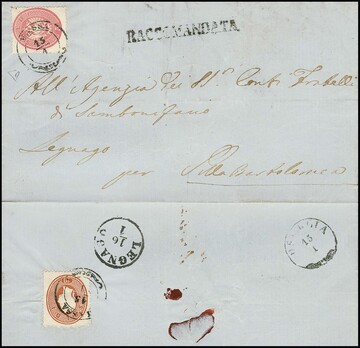 15
1
RACCOMANDATA
All'Agenzia dei SS.ri Conti Fratelli
di Sambonifacio
Legnago
per Villa Bartolomea
LEGNAGO
16
1
VENEZIA
15
1
15